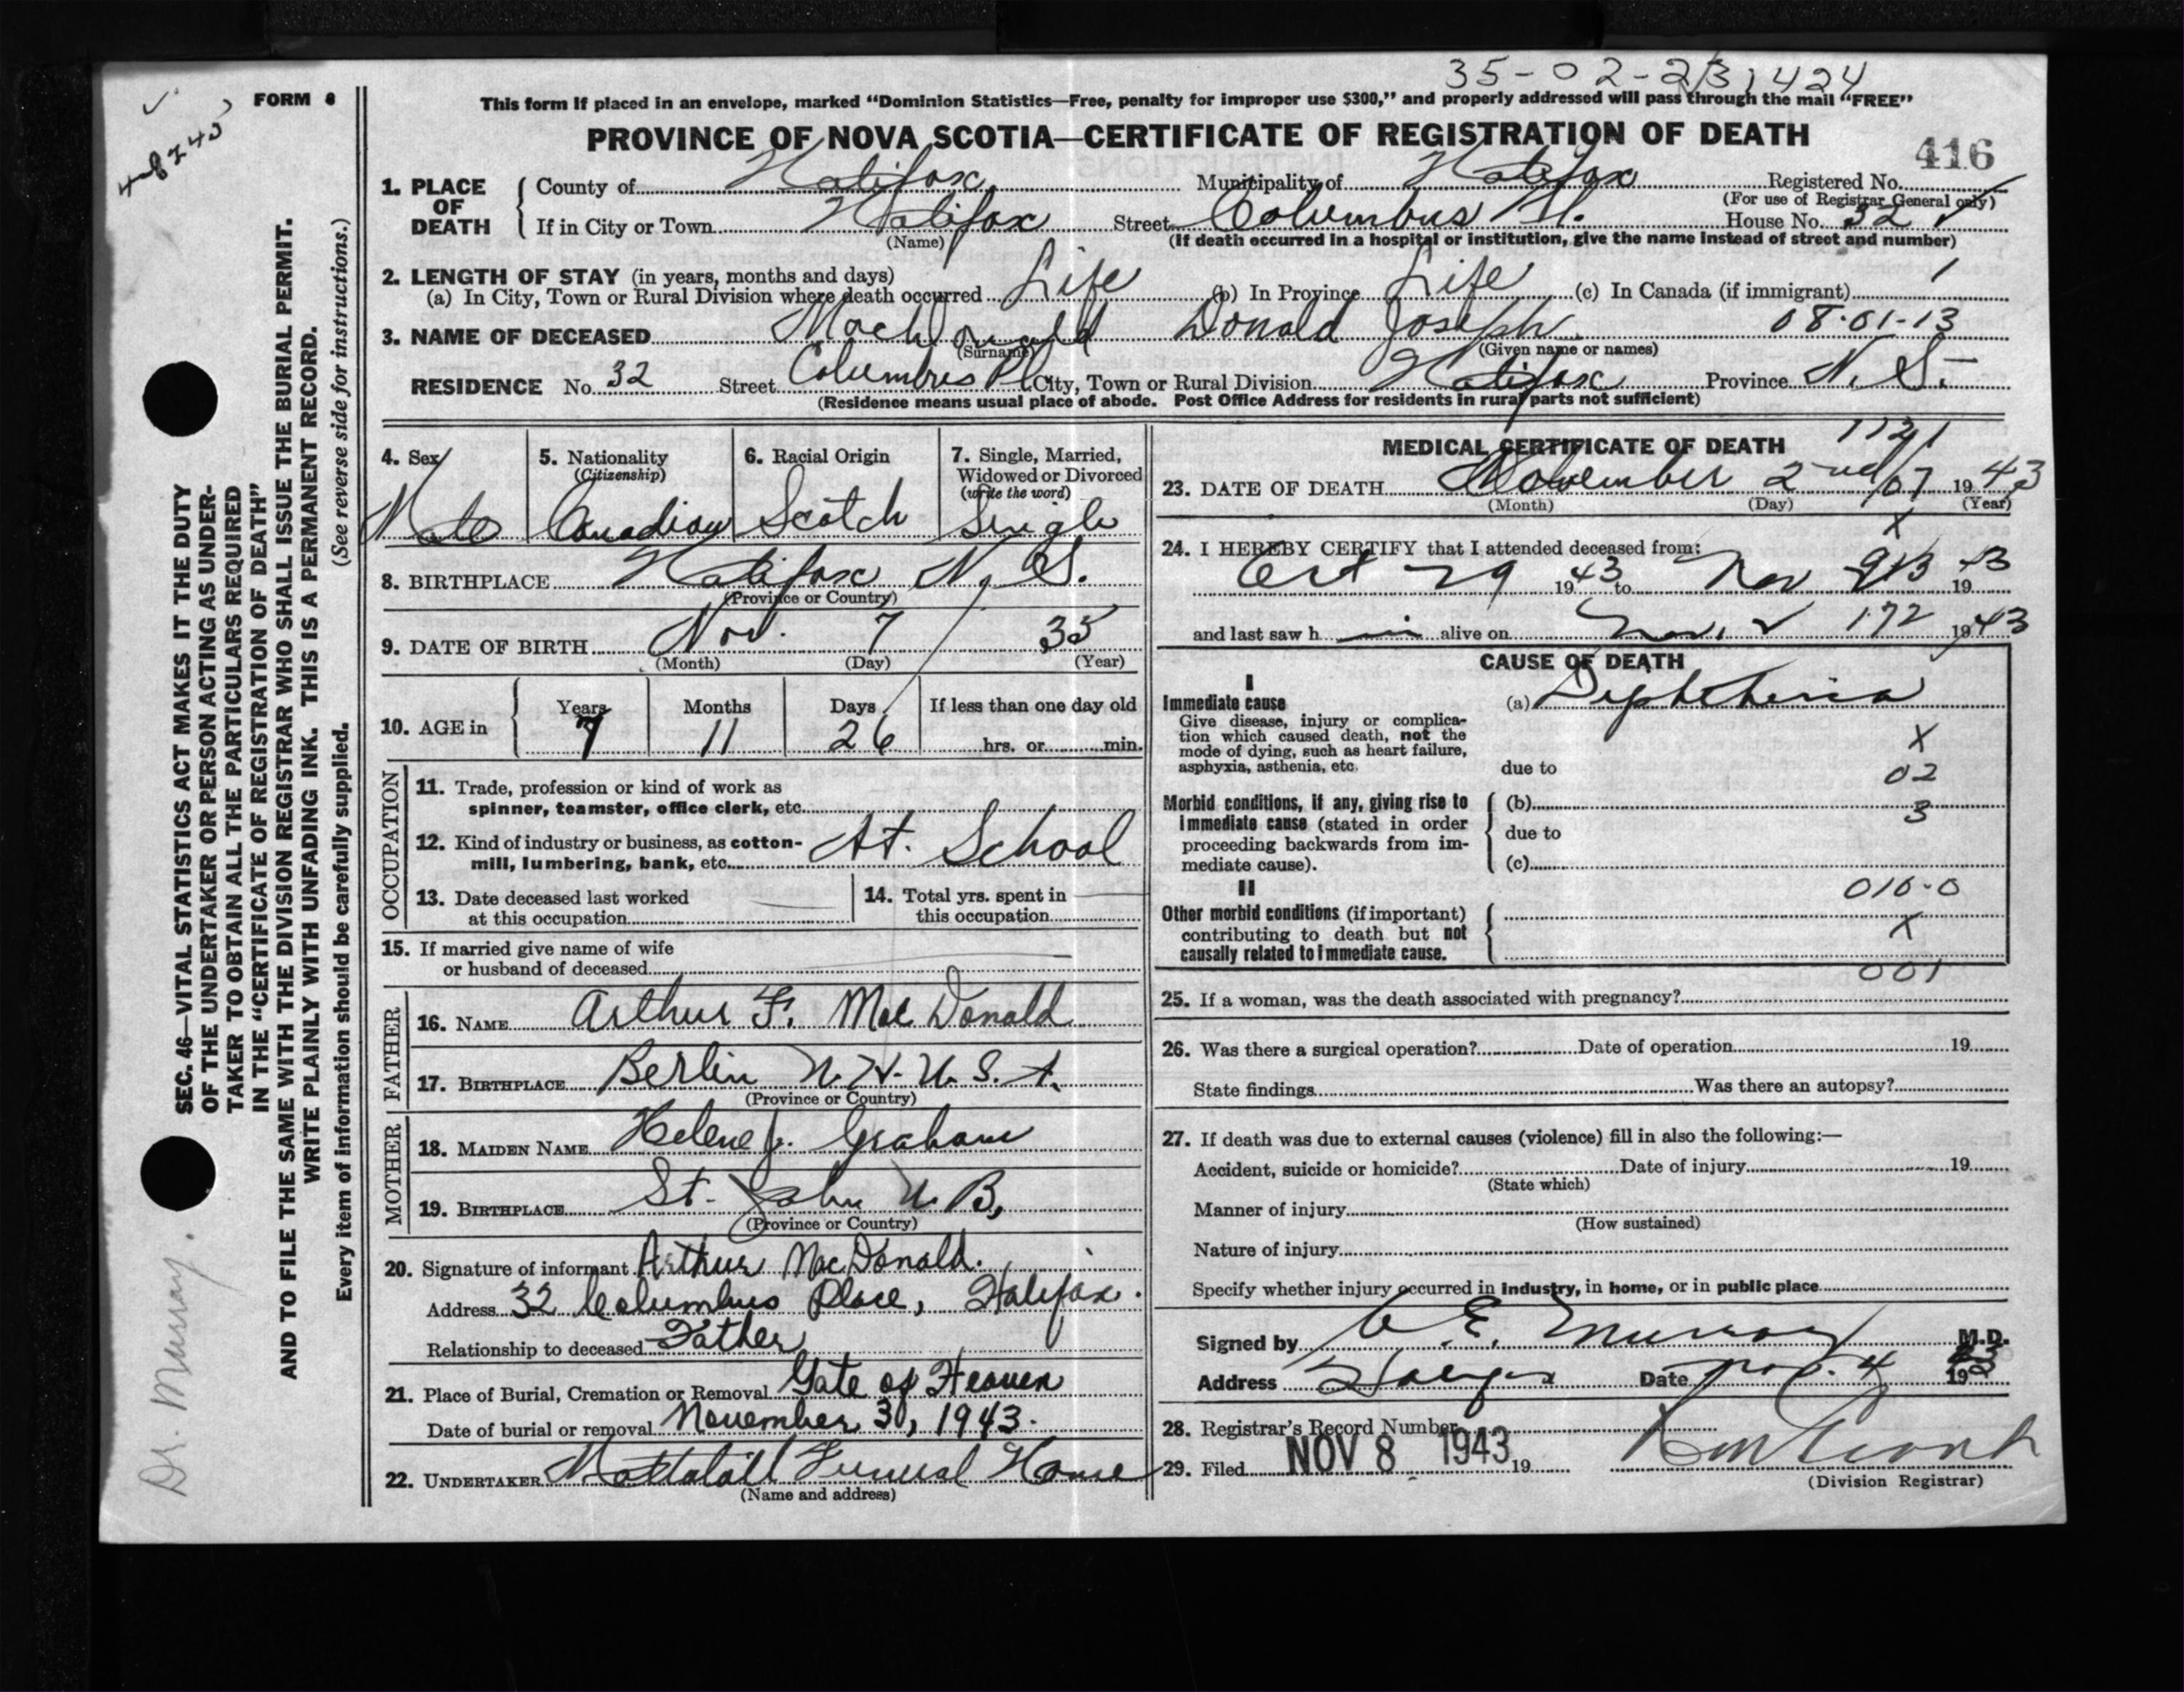 35-02-23 1424
FORM 6
This form if placed in an envelope, marked “Dominion Statistics—Free, penalty for improper use $300,” and properly addressed will pass through the mail “FREE”
PROVINCE OF NOVA SCOTIA—CERTIFICATE OF REGISTRATION OF DEATH
416
1. PLACE OF DEATH
County of Halifax Municipality of Halifax Registered No.
(For use of Registrar General only)
If in City or Town Halifax Street Columbus Pl. House No. 32
(Name)
(If death occurred in a hospital or institution, give the name instead of street and number)
2. LENGTH OF STAY (in years, months and days)
(a) In City, Town or Rural Division where death occurred Life (b) In Province Life (c) In Canada (if immigrant) 1
3. NAME OF DECEASED MacDonald Donald Joseph 08-01-13
(Surname) (Given name or names)
RESIDENCE No. 32 Street Columbus Pl. City, Town or Rural Division Halifax Province N. S.
(Residence means usual place of abode. Post Office Address for residents in rural parts not sufficient)
4. Sex Male
5. Nationality (Citizenship) Canadian
6. Racial Origin Scotch
7. Single, Married, Widowed or Divorced (write the word) Single
8. BIRTHPLACE Halifax N. S.
(Province or Country)
9. DATE OF BIRTH Nov. 7 35
(Month) (Day) (Year)
10. AGE in Years 7 Months 11 Days 26 If less than one day old
hrs. or min.
OCCUPATION
11. Trade, profession or kind of work as
spinner, teamster, office clerk, etc.
12. Kind of industry or business, as cotton-
mill, lumbering, bank, etc. At. School
13. Date deceased last worked
at this occupation
14. Total yrs. spent in
this occupation
15. If married give name of wife
or husband of deceased
FATHER
16. NAME Arthur F. MacDonald
17. BIRTHPLACE Berlin N. H. U. S. A.
(Province or Country)
MOTHER
18. MAIDEN NAME Helene J. Graham
19. BIRTHPLACE St. John N. B.
(Province or Country)
20. Signature of informant Arthur MacDonald.
Address 32 Columbus Place, Halifax.
Relationship to deceased Father
21. Place of Burial, Cremation or Removal Gate of Heaven
Date of burial or removal November 3, 1943.
22. UNDERTAKER Mattatall Funeral Home
(Name and address)
MEDICAL CERTIFICATE OF DEATH
1121
23. DATE OF DEATH November 2nd 07 1943
(Month) (Day) (Year)
X
24. I HEREBY CERTIFY that I attended deceased from:
Oct 29 1943 to Nov 19
and last saw h im alive on Nov. 2 172 1943
CAUSE OF DEATH
I
Immediate cause
Give disease, injury or complica-
tion which caused death, not the
mode of dying, such as heart failure,
asphyxia, asthenia, etc.
(a) Diphtheria
X
due to 02
Morbid conditions, if any, giving rise to
immediate cause (stated in order
proceeding backwards from im-
mediate cause).
(b) 3
due to
(c)
II
010-0
Other morbid conditions (if important)
contributing to death but not
causally related to immediate cause.
X
001
25. If a woman, was the death associated with pregnancy?
26. Was there a surgical operation? Date of operation 19
State findings Was there an autopsy?
27. If death was due to external causes (violence) fill in also the following:—
Accident, suicide or homicide? Date of injury 19
(State which)
Manner of injury
(How sustained)
Nature of injury
Specify whether injury occurred in industry, in home, or in public place
Signed by E. Murray M.D.
Address Halifax Date Nov. 4 19
28. Registrar's Record Number
29. Filed NOV 8 1943 19
(Division Registrar)
SEC. 46—VITAL STATISTICS ACT MAKES IT THE DUTY
OF THE UNDERTAKER OR PERSON ACTING AS UNDER-
TAKER TO OBTAIN ALL THE PARTICULARS REQUIRED
IN THE “CERTIFICATE OF REGISTRATION OF DEATH”
AND TO FILE THE SAME WITH THE DIVISION REGISTRAR WHO SHALL ISSUE THE BURIAL PERMIT.
WRITE PLAINLY WITH UNFADING INK. THIS IS A PERMANENT RECORD.
Every item of information should be carefully supplied. (See reverse side for instructions.)
Dr. Murray.